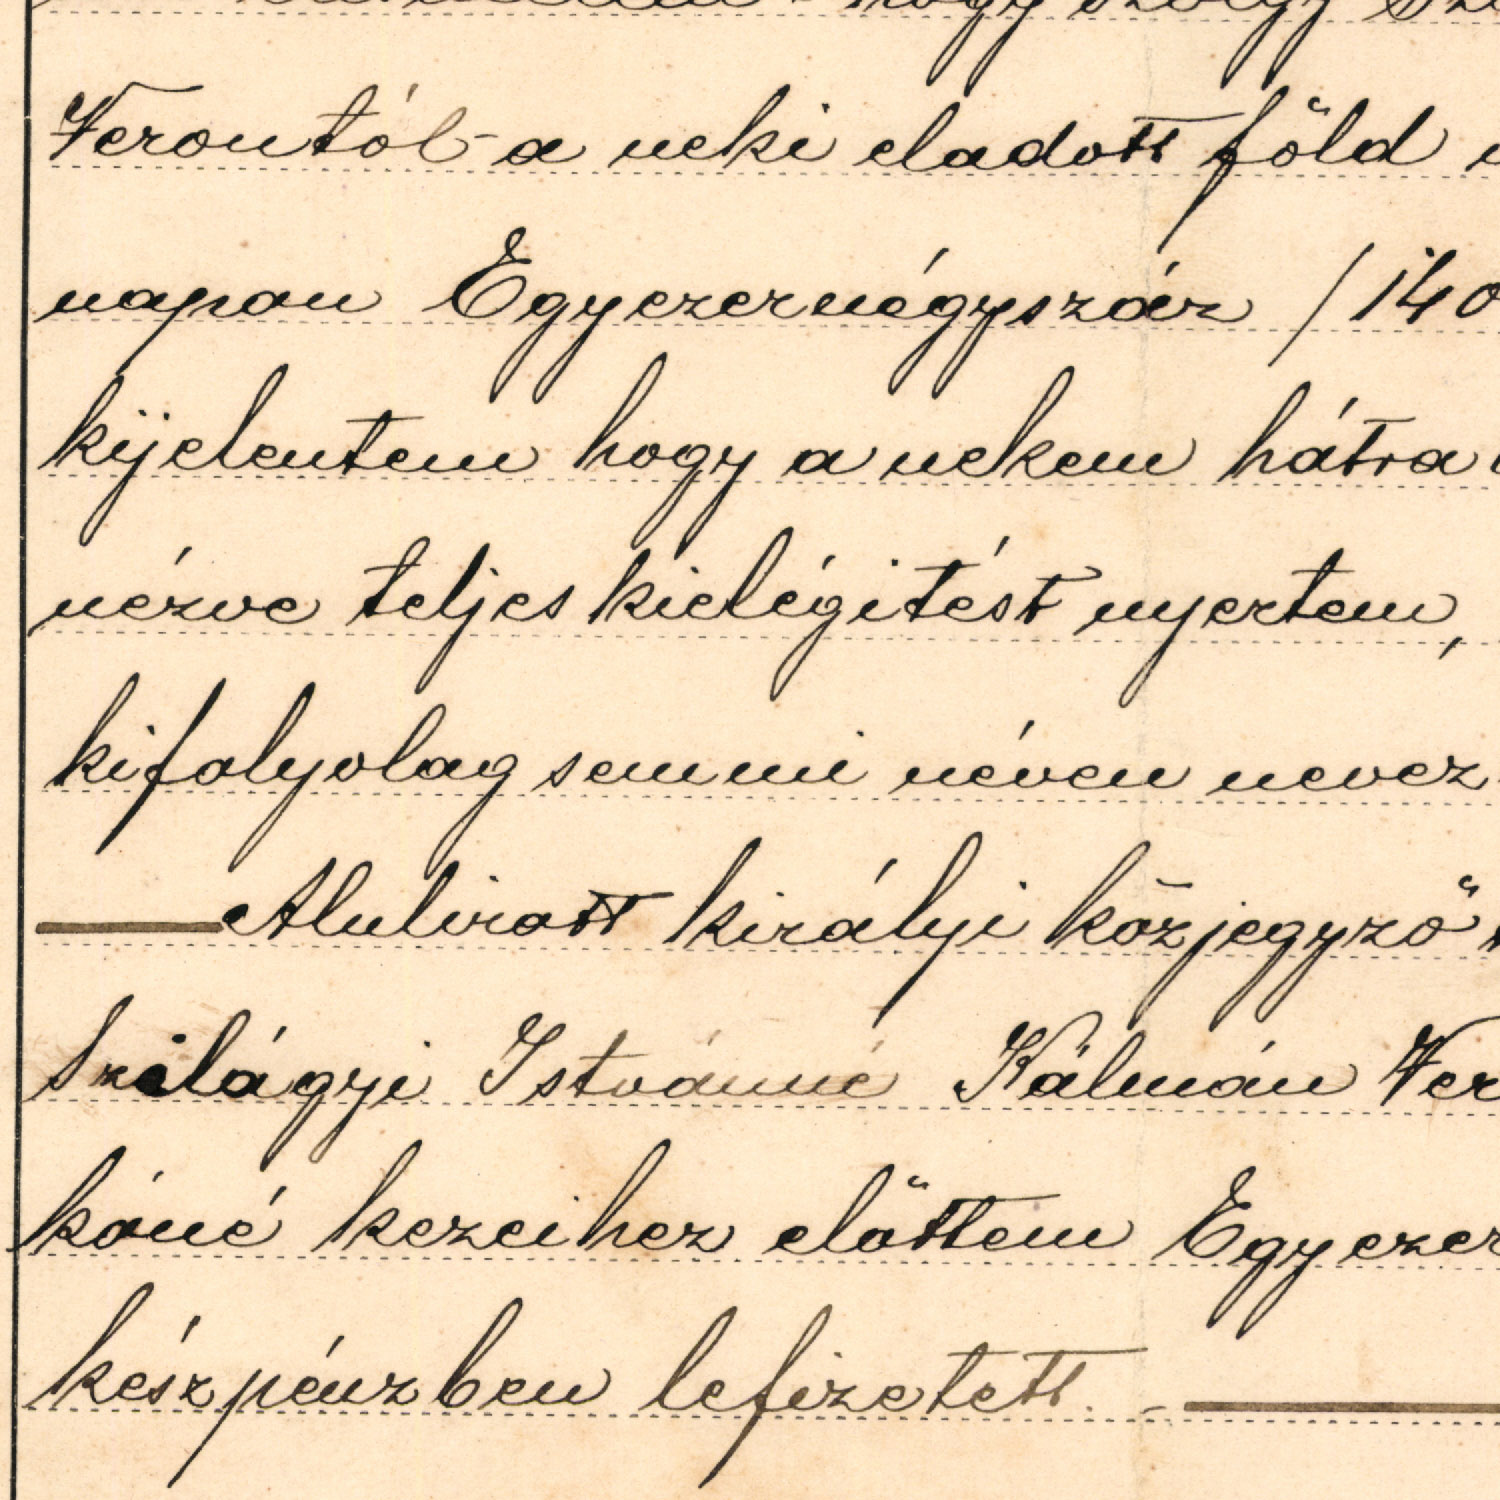 hogy
Verontól a neki eladott föld
napon Egyezernégyszáz /140
kijelentem hogy a nekem hátra
nézve teljes kielégitést nyertem,
kifolyolag semmi néven nevez
Alulirott királyi közjegyző
Szilágyi Istvánné Kálmán Ver
káné kezeihez előttem Egyezer
készpénzben lefizetett